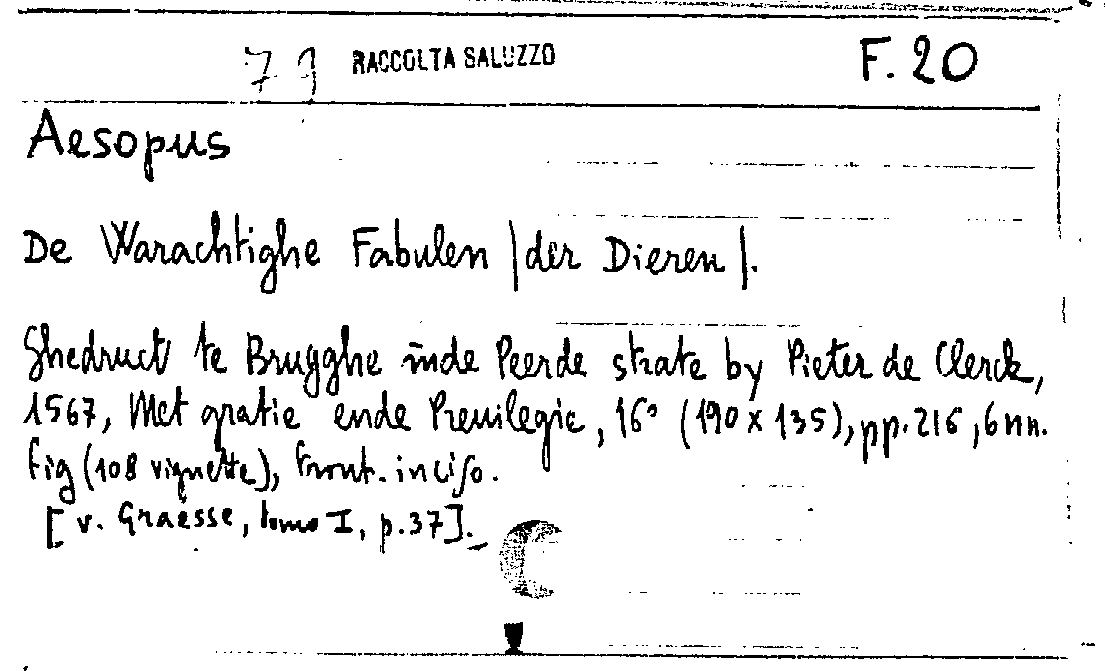 79 RACCOLTA SALUZZO F.20
Aesopus
De Warachtighe Fabulen |der Dieren|.
Ghedruct te Brugghe inde Peerde strate by Pieter de Clerck,
1567, Met gratie ende Preuilegie, 16° (190 x 135), pp. 216, 6 nn.
fig (108 vignette), front. inciso.
[v. Graesse, tomo I, p.37].